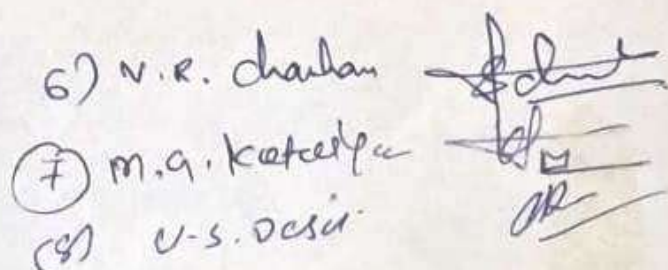 6) N.R. Chauhan
7) M.G. Katariya
(8) V.S. Desai